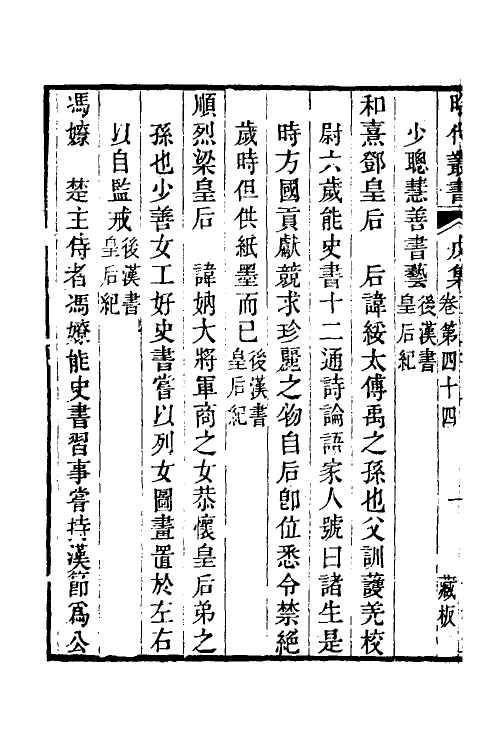 昭代叢書 戊集 卷第四十四 一 藏板
少聰慧善書藝 後漢書皇后紀
和熹鄧皇后 后諱綏太傅禹之孫也父訓護羌校
尉六歲能史書十二通詩論語家人號曰諸生是
時方國貢獻競求珍麗之物自后卽位悉令禁絕
歲時但供紙墨而已 後漢書皇后紀
順烈梁皇后 諱妠大將軍商之女恭懷皇后弟之
孫也少善女工好史書嘗以列女圖畫置於左右
以自監戒 後漢書皇后紀
馮嫽 楚主侍者馮嫽能史書習事嘗持漢節爲公